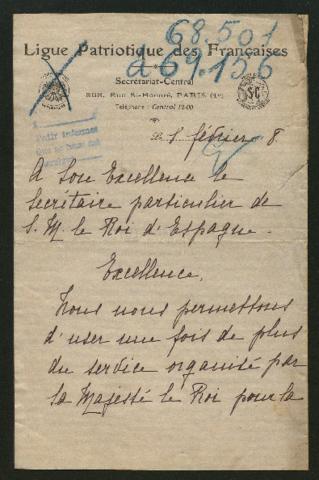 68.501
a 69.156
Ligue Patriotique des Françaises
Secrétariat-Central
Rue St-Honoré, PARIS
Téléphone : Central
Le 1 février 8
A Son Excellence le
Secrétaire particulier de
S. M. le Roi d'Espagne.
Excellence,
Nous nous permettons
d'user une fois de plus
du service organisé par
Sa Majesté le Roi pour la